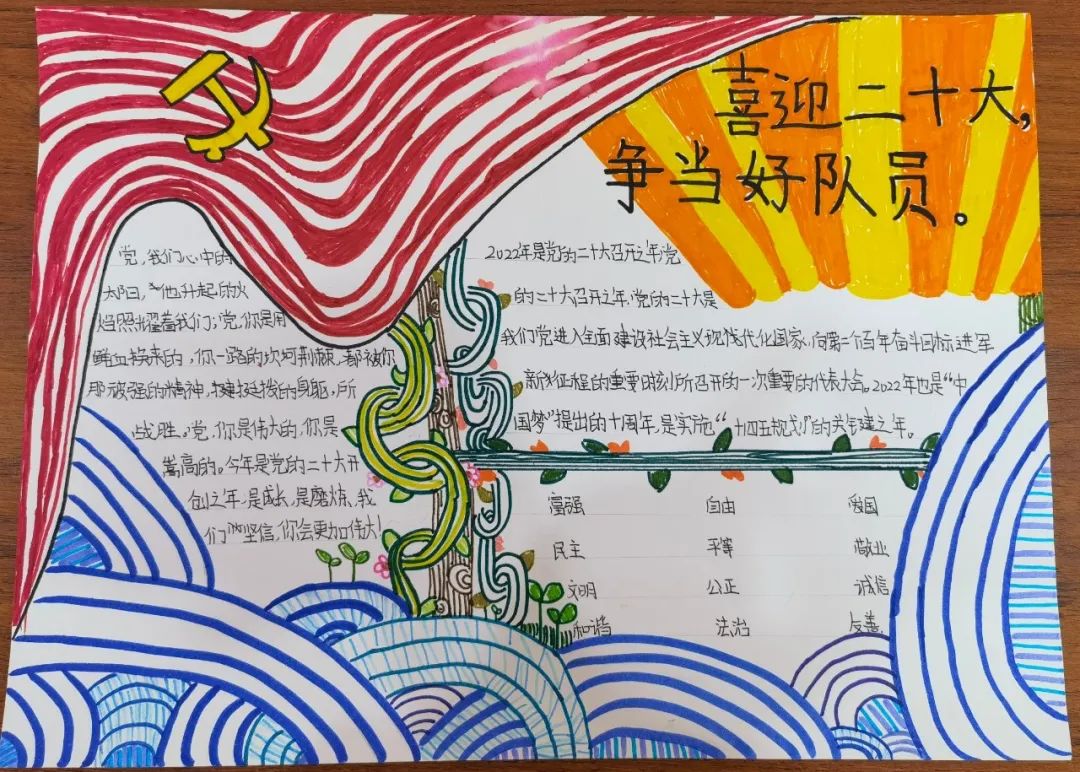 喜迎二十大,
争当好队员。
党,我们心中的
太阳,他升起的火
焰照耀着我们;党,你是用
鲜血换来的,你一路的坎坷荆棘,都被你
那顽强的精神,挺拔的身躯,所
战胜。党,你是伟大的,你是
嵩高的。今年是党的二十大开
创之年,是成长,是磨炼,我
们坚信,你会更加伟大!
2022年是党的二十大召开之年,党
的二十大召开之年,党的二十大是
我们党进入全面建设社会主义现代化国家,向第二个百年奋斗目标进军
新征程的重要时刻所召开的一次重要的代表大会。2022年也是“中
国梦”提出的十周年,是实施“十四五规划”的关键之年。
富强 自由 爱国
民主 平等 敬业
文明 公正 诚信
和谐 法治 友善